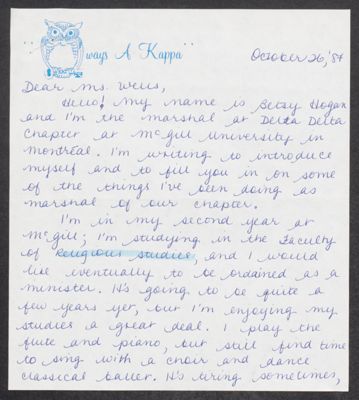 "ways A Kappa"
October 26, '84
Dear Ms. Wells,
Hello! My name is Betsy Hogan
and I'm the marshal at Delta Delta
Chapter at McGill University in
Montréal. I'm writing to introduce
myself and to fill you in on some
of the things I've been doing as
marshal of our chapter.
I'm in my second year at
McGill; I'm studying in the Faculty
of Religious Studies, and I would
like eventually to be ordained as a
minister. It's going to be quite a
few years yet, but I'm enjoying my
studies a great deal. I play the
flute and piano, but still find time
to sing with a choir and dance
classical ballet. It's tiring sometimes,